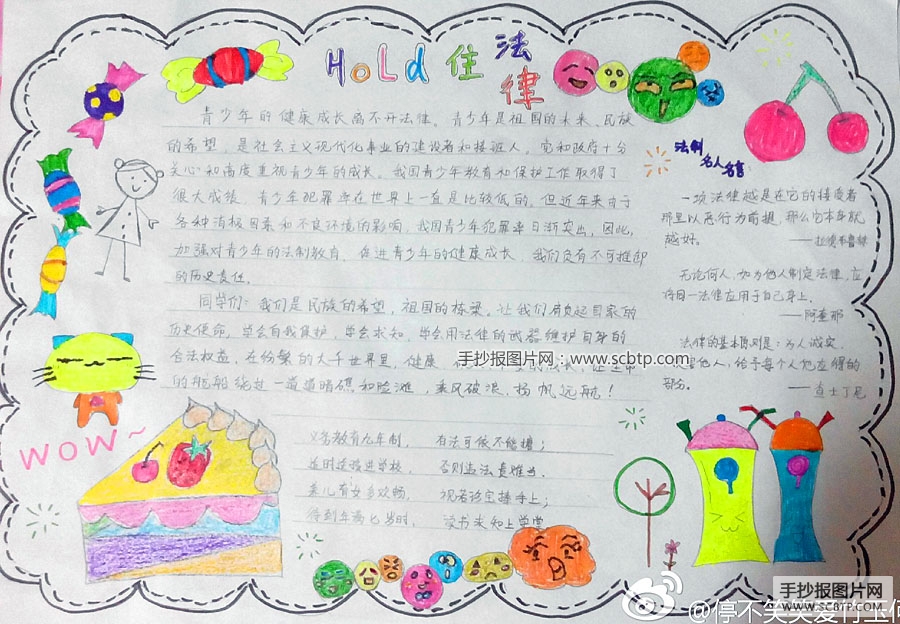 Hold 住 法
律
青少年的健康成长离不开法律。青少年是祖国的未来、民族
的希望，是社会主义现代化事业的建设者和接班人。党和政府十分
关心和高度重视青少年的成长。我国青少年教育和保护工作取得了
很大成绩，青少年犯罪率在世界上一直是比较低的。但近年来由于
各种消极因素和不良环境的影响，我国青少年犯罪率日渐突出，因此，
加强对青少年的法制教育，促进青少年的健康成长，我们负有不可推卸
的历史责任。
同学们：我们是民族的希望，祖国的栋梁。让我们肩负起国家的
历史使命，学会自我保护，学会求知，学会用法律的武器维护自身的
合法权益，在纷繁的大千世界里，健康
的船舶绕过一道道暗礁和险滩，乘风破浪、扬帆远航！
法制
名人名言
一项法律越是在它的接受者
那里以恶行为前提，那么它本身就
越好。
——拉德布鲁赫
无论何人，如为他人制定法律，应
将同一法律应用于自己身上。
——阿奎那
法律的基本原则是：为人诚实，
他人，给予每个人他应得的
部分。
——查士丁尼
手抄报图片网：www.scbtp.com
义务教育九年制， 有法可依不能糟；
适时送孩进学校， 否则违法责难当。
养儿有女多欢畅， 视若珍宝捧手上；
得到年满七岁时， 读书求知上学堂
wow~
手抄报图片网
WWW.SCBTP.COM
@停不笑笑爱竹玉何